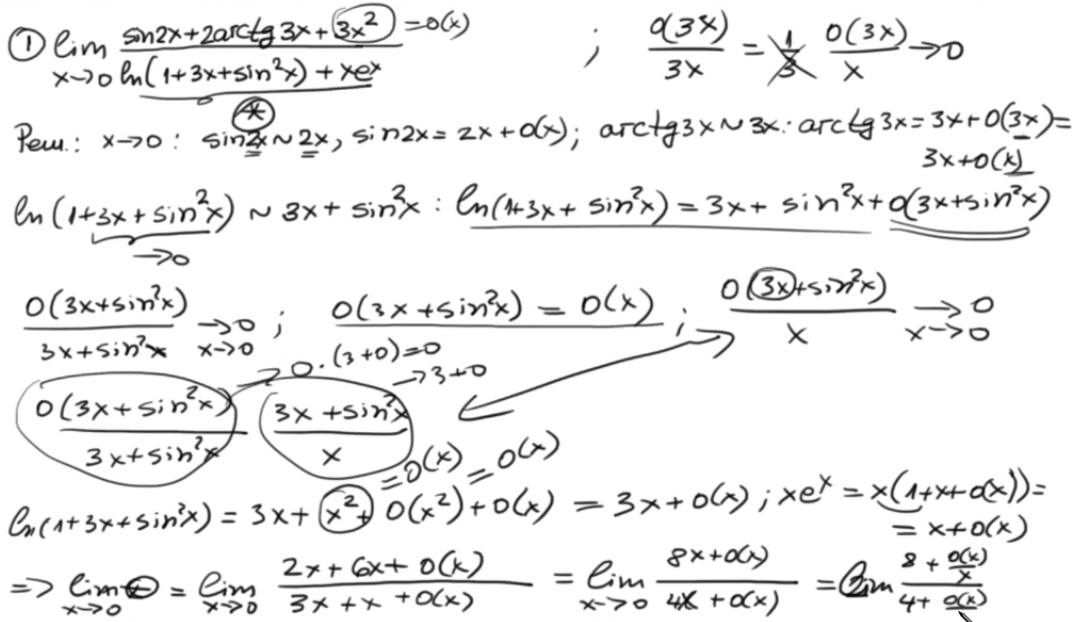 ① lim x→0 (sin2x+2arctg 3x+3x²)/(ln(1+3x+sin²x)+xeˣ) =o(x) ; o(3x)/3x = 1/3 o(3x)/x →0
*
Реш.: x→0 : sin2x ~ 2x, sin2x = 2x+o(x); arctg3x ~ 3x: arctg 3x = 3x+o(3x)=
3x+o(x)
ln(1+3x+sin²x) ~ 3x+sin²x : ln(1+3x+sin²x) = 3x+sin²x+o(3x+sin²x)
→0
o(3x+sin²x)/(3x+sin²x) →0 x→0 ; o(3x+sin²x) = o(x) ; o(3x+sin²x)/x →0 x→0
→0·(3+0)=0
→3+0
o(3x+sin²x)/(3x+sin²x) (3x+sin²x)/x
=o(x) =o(x)
ln(1+3x+sin²x) = 3x+x²+o(x²)+o(x) = 3x+o(x) ; xeˣ = x(1+x+o(x))=
= x+o(x)
=> lim x→0 * = lim x→0 (2x+6x+o(x))/(3x+x+o(x)) = lim x→0 (8x+o(x))/(4x+o(x)) = lim (8+o(x)/x)/(4+o(x))